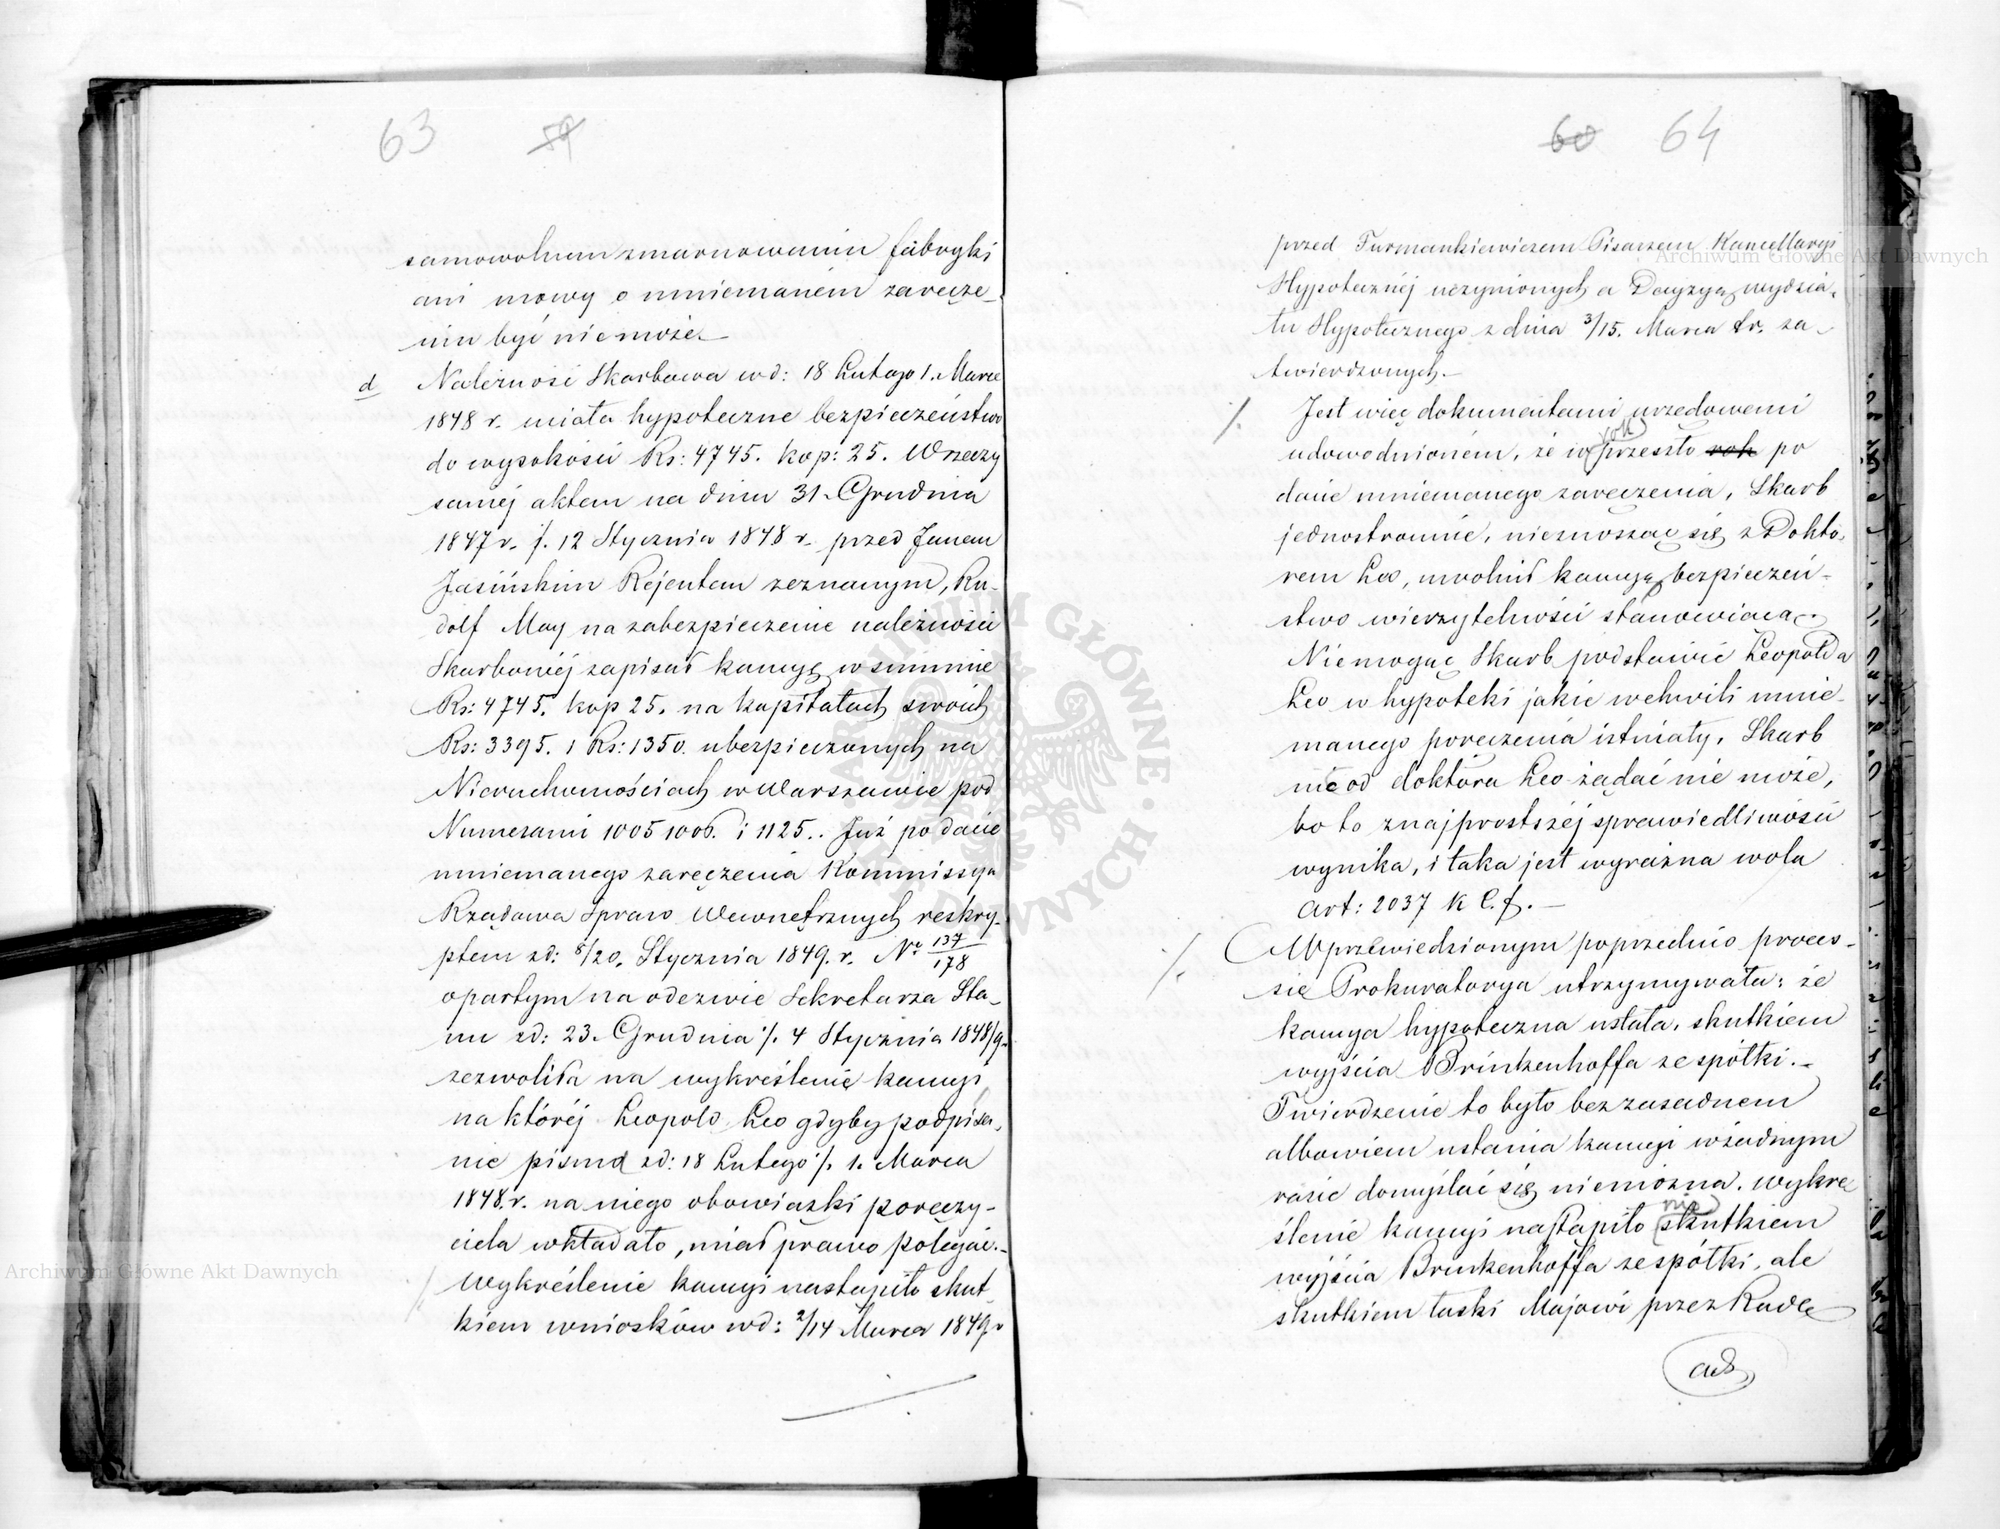 63 59
samowolnem zmarnowaniu fabryki
ani mowy o mniemaném zaręcze_
niu być niemoże._
d Należność Skarbowa wd: 18 Lutego 1. Marca
1848 r. miała hypoteczne bezpieczeństwo
do wysokości Rs: 4745. kop: 25. W rzeczy
saméj aktem na dniu 31. Grudnia
1847 r. /. 12 Stycznia 1848 r. przed Janem
Jasińskim Rejentem zeznanym, Ru-
dolf May na zabezpieczenie należności
Skarbowéj zapisał kaucyę w summie
Rs: 4745. kop 25. na kapitałach swoich
Rs: 3395. i Rs: 1350. ubezpieczonych na
Nieruchomościach w Warszawie pod
Numerami 1005 1006. i 1125.. Już po dacie
mniemanego zaręczenia Kommissya
Rządowa Spraw Wewnętrznych reskry-
ptem zd: 8/20. Stycznia 1849. r. No 137/178
opartym na odezwie Sekretarza Sta_
nu zd: 23. Grudnia /. 4 Stycznia 1848/9.
zezwoliła na wykreślenie kaucyi
na któréj Leopold Leo gdyby podpisa,
nie pisma zd: 18 Lutego /. 1. Marca
1848. r. na niego obowiązki poręczy-
ciela wkładało, miał prawo polegać._
Wykreślenie kaucyi nastąpiło skut_
kiem wniosków wd: 2/14 Marca 1849 r
60 64
przed Turmankiewiczem Pisarzem Kancellaryi
Hypotecznéj uczynionych a Decyzyą wydzia,
łu Hypotecznego z dnia 3/15. Marca t.r. za_
twierdzonych._
/. Jest więc dokumentami urzędowemi
udowodnioném, że w rok przeszło rok po
dacie mniemanego zaręczenia, Skarb
jednostronnie, nieznosząc się z Dokto,
rem Leo, uwolnił kaucyę bezpieczeń-
stwo wierzytelności stanowiącą.
Niemogąc Skarb podstawić Leopolda
Leo w hypoteki jakie wchwili mnie_
manego poręczenia istniały, Skarb
nic od doktora Leo żądać nie może,
bo to znajprostszéj sprawiedliwości
wynika, i taka jest wyraźna wola
art: 2037 K C. f. _
/. W przewiedzionym poprzednio proces_
sie Prokuratorya utrzymywała: że
kaucya hypoteczna ustała, skutkiem
wyjścia Brinkenhoffa ze spółki._
Twierdzenie to było bezzasadnem
albowiem ustania kaucyi wżadnym
razie domyślać się niemożna. Wykre_
ślenie kaucyi nastąpiło nie skutkiem
wyjścia Brinkenhoffa ze spółki, ale
skutkiem łaski Majowi przez Radę
Archiwum Główne Akt Dawnych
Archiwum Główne Akt Dawnych
ARCHIWUM GŁÓWNE AKT DAWNYCH